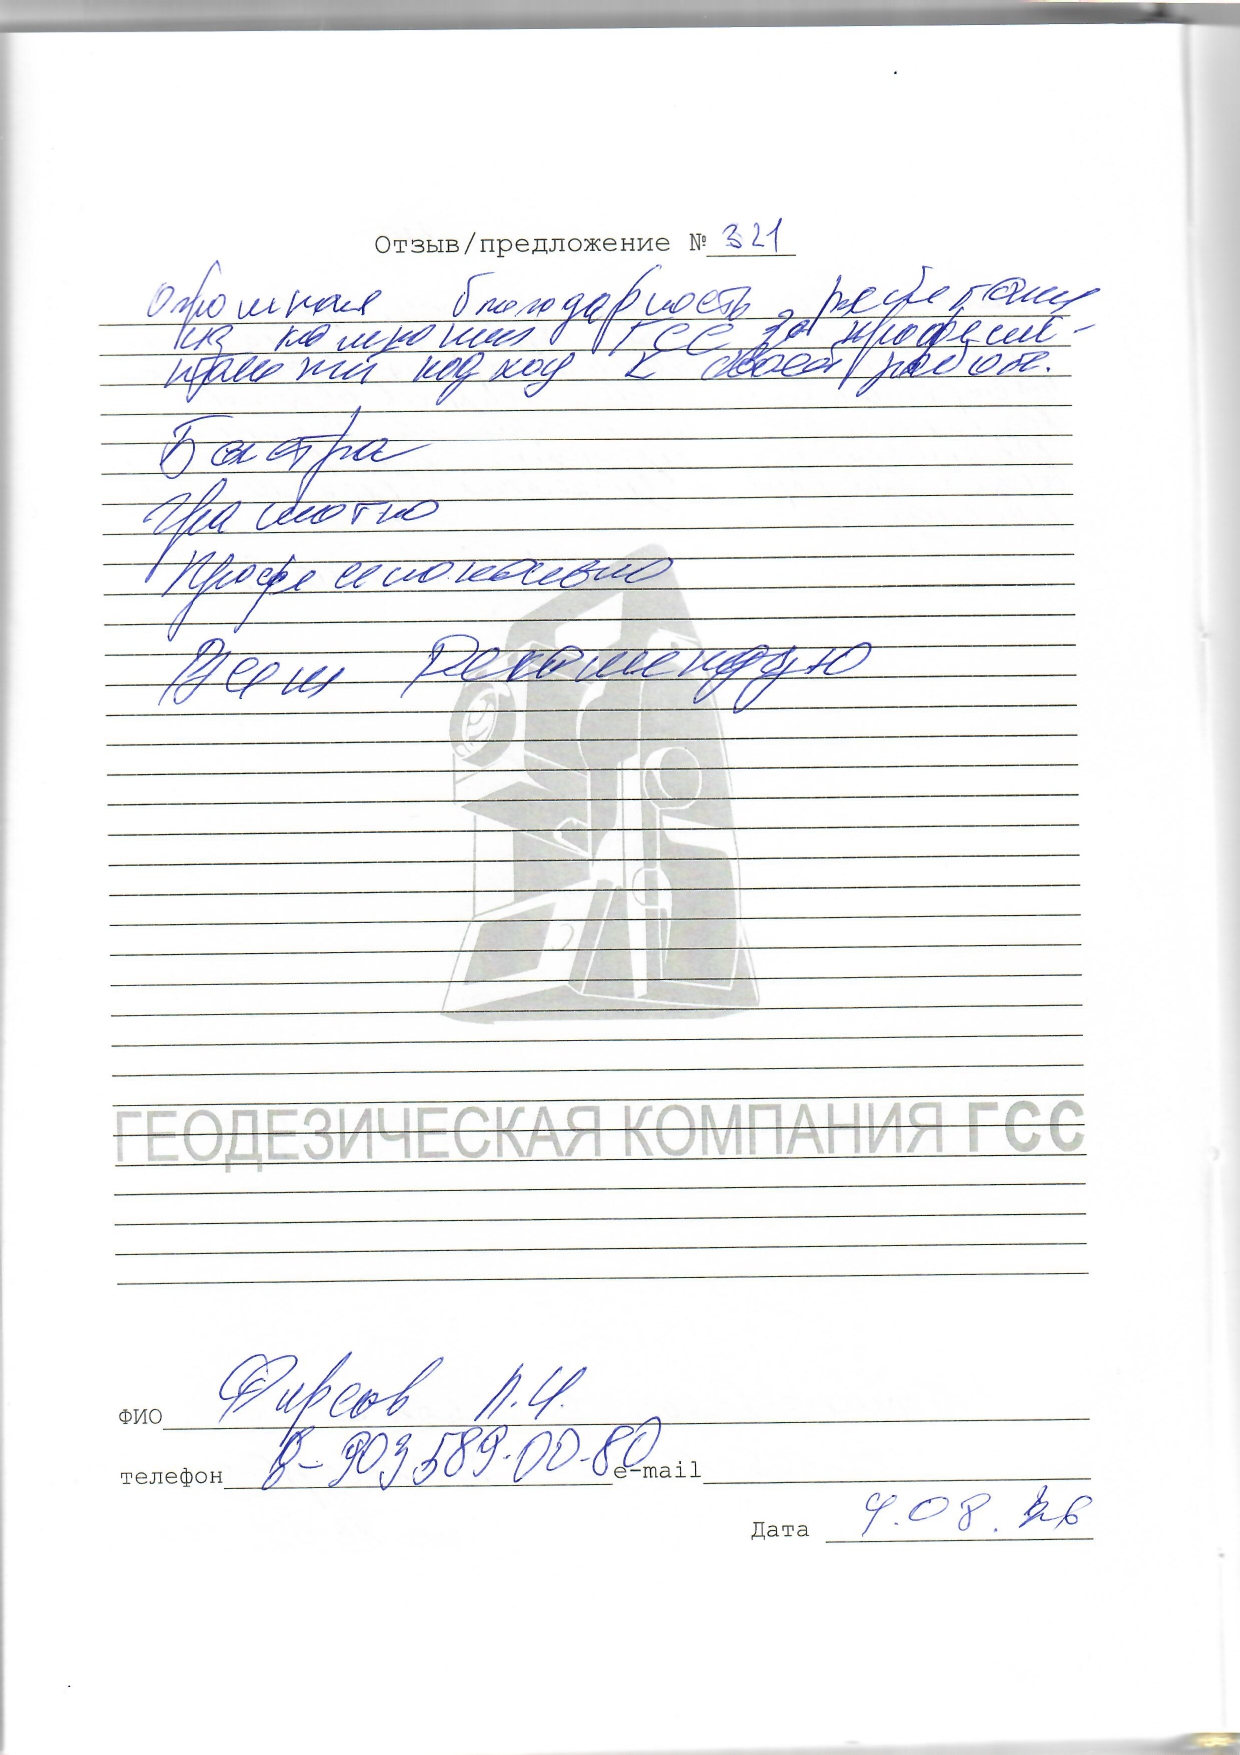 Отзыв/предложение № 321
Огромная благодарность ребятам
из компании ГСС за професси-
подход к своей работе.
Быстра
Грамотно
Професионально
Всем рекомендую
ГЕОДЕЗИЧЕСКАЯ КОМПАНИЯ ГСС
ФИО Фирсов П.И.
телефон 8-903 589-00-80 e-mail
Дата 4.08.